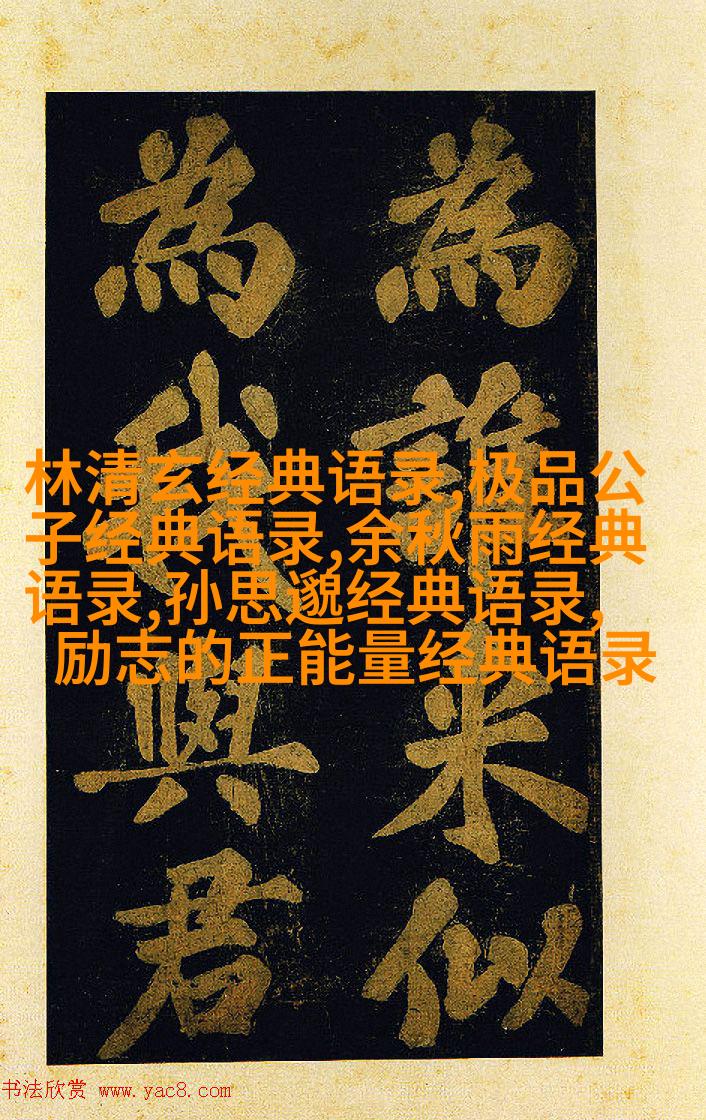 為誰米似
為我與君
林清玄经典语录,极品公
子经典语录,余秋雨经典
语录,孙思邈经典语录,
励志的正能量经典语录
书法欣赏 www.yac8.com